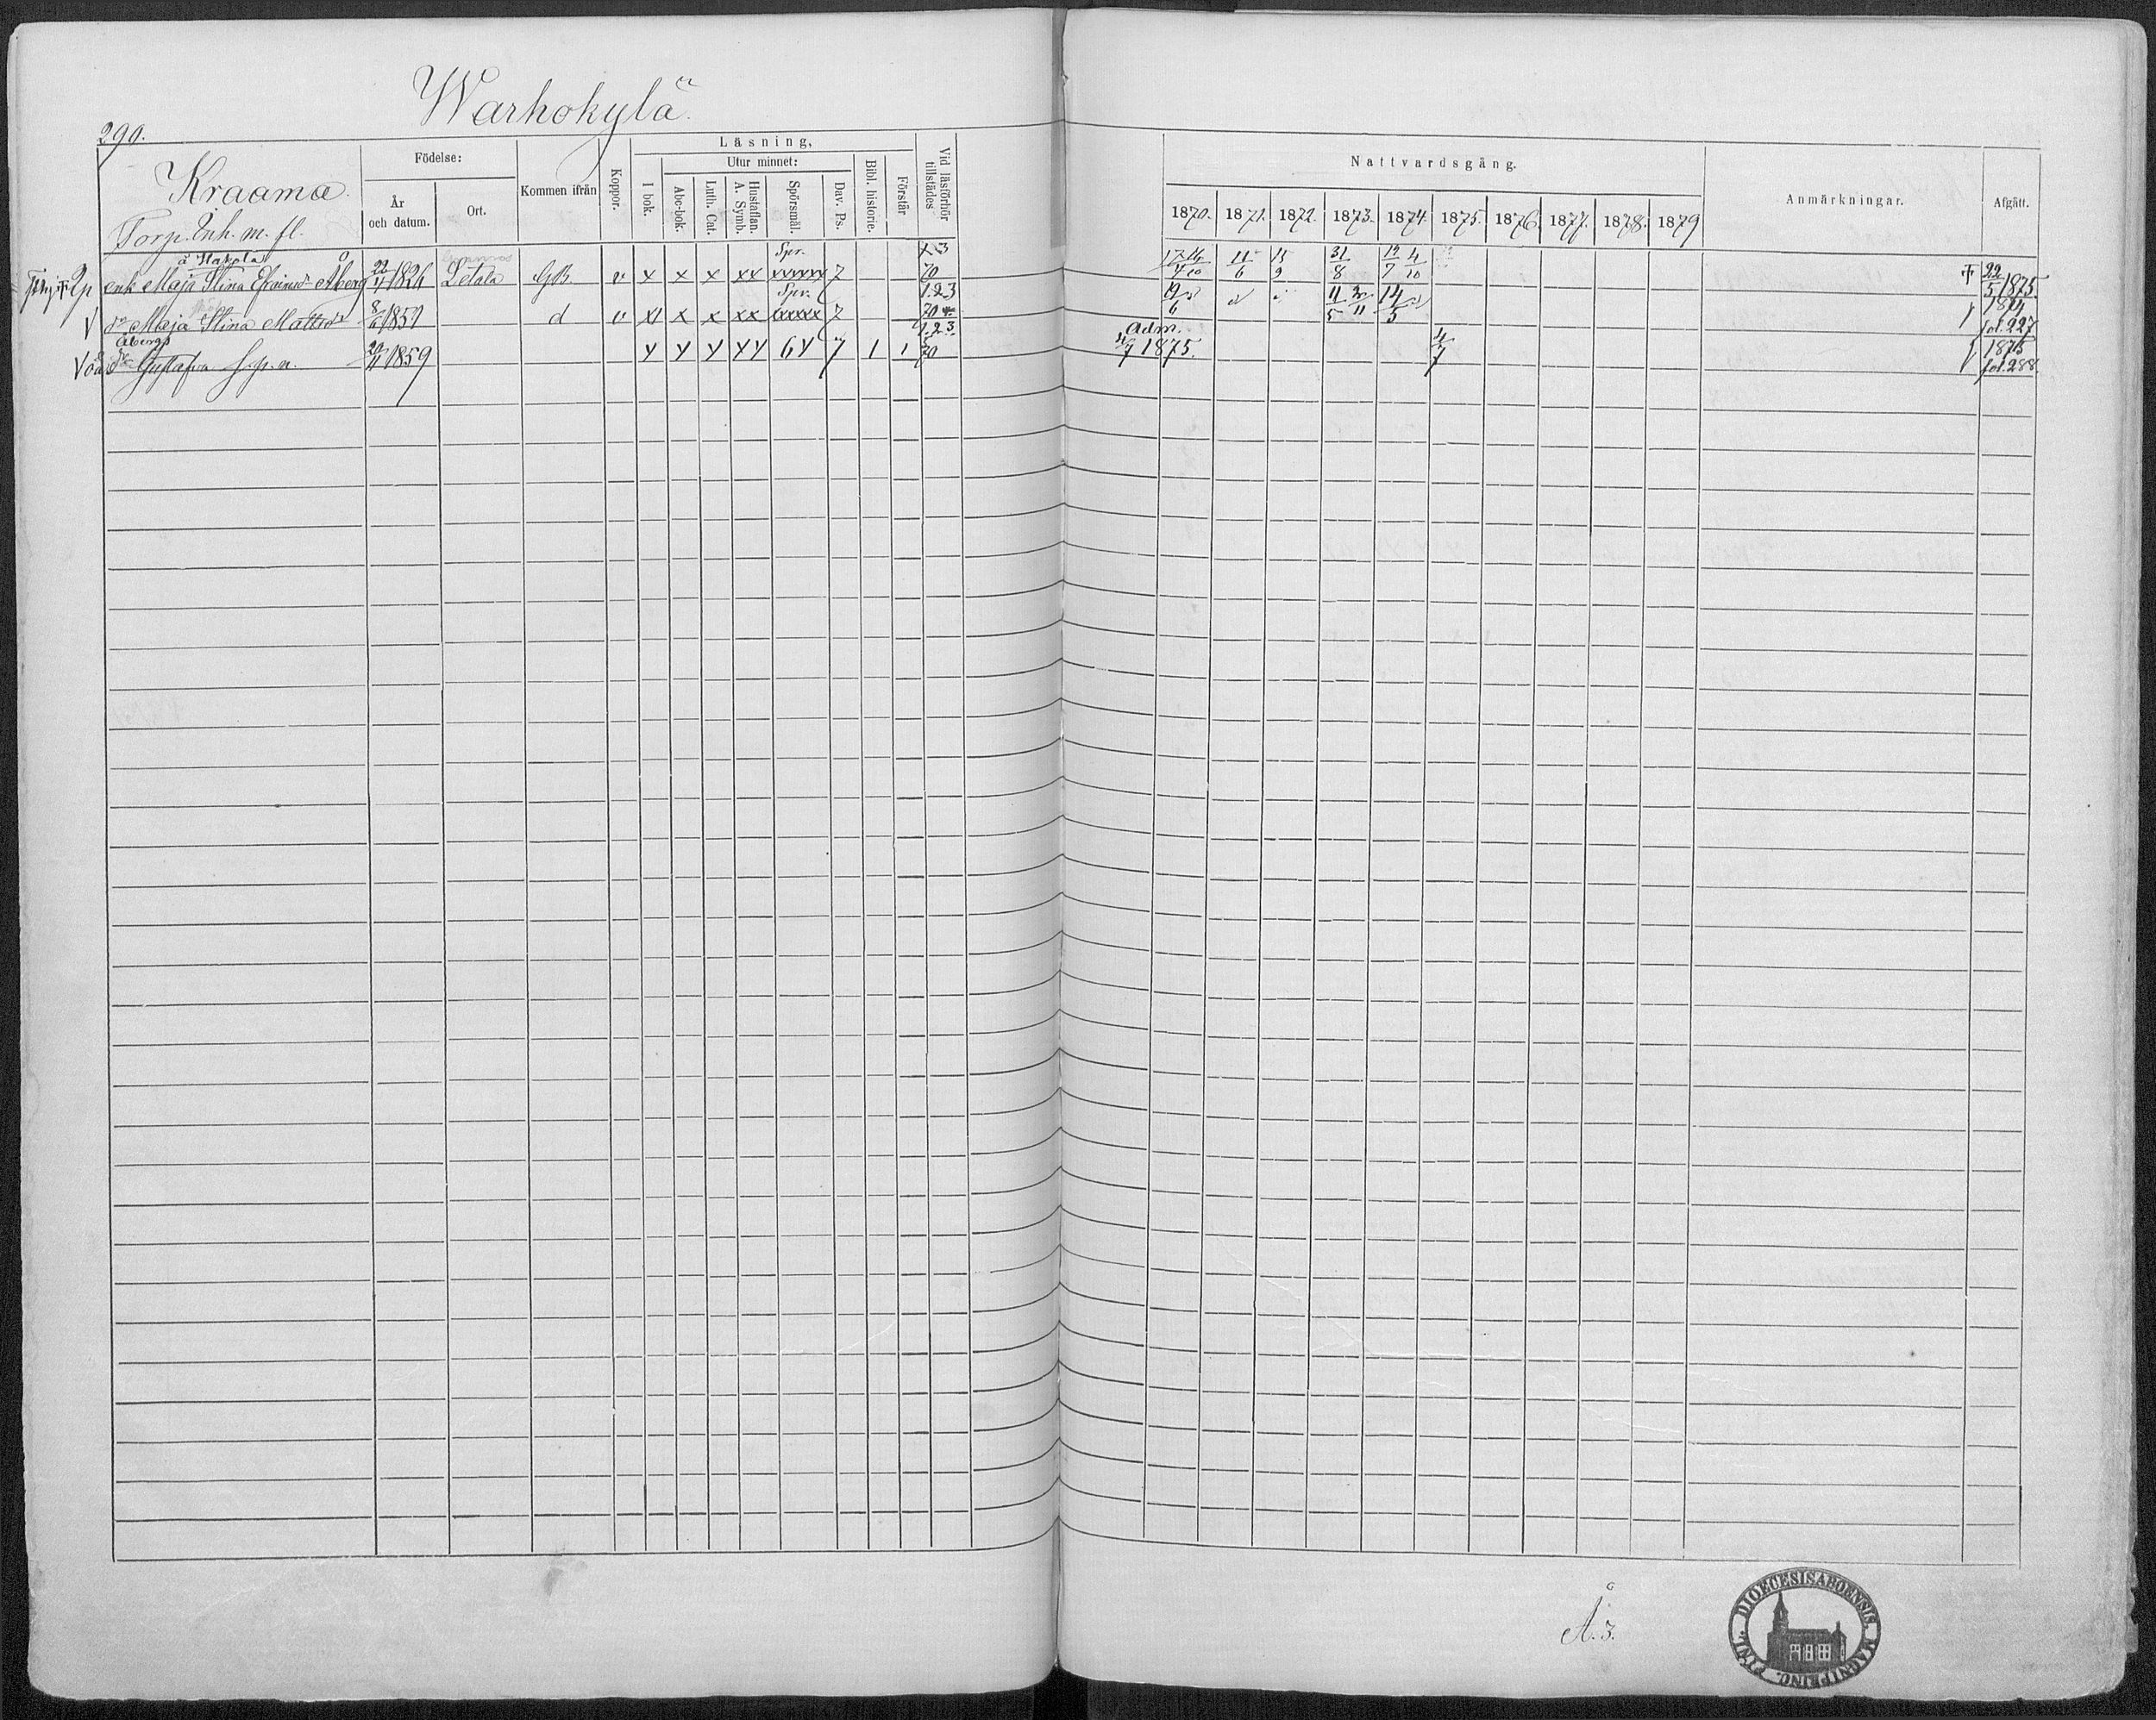 Warhokylä
290.
Kraama
Torp. Enh. m. fl.
Födelse:
År och datum.
Ort.
Kommen ifrån
Koppor.
Läsning,
I bok.
Utur minnet:
Abc-bok.
Luth. Cat.
Hustaflan. A. Symb.
Spörsmål.
Dav. Ps.
Bibl. historie.
Förstår
Vid läsförhör tillstädes
Nattvardsgång.
1870. 1871. 1872. 1873. 1874. 1875. 1876. 1877. 1878. 1879
Anmärkningar.
Afgått.
enk Maja Stina Efraimsdr Åberg 22/11 1826 Letala GB. v x x x xx xxxxxx 7 70 17/4 16/10 11/6 15/9 31/8 12/7 4/10 22/5 1875.
Spr.
dr Maja Stina Mattsdr 8/6 1851 d v x x x xx xxxxx 7 1.2.3 70 11/5 14/5 1874 fol. 227
Åbergs
dr Gustafva 1859 x x x xx 6x 7 1 1 1.2.3 70 Adm. 4/7 1875. 4/7 1875 fol. 288.
Å. 3.
DIOECESIS ABOENSIS. MAGNI PRINC. FINL.